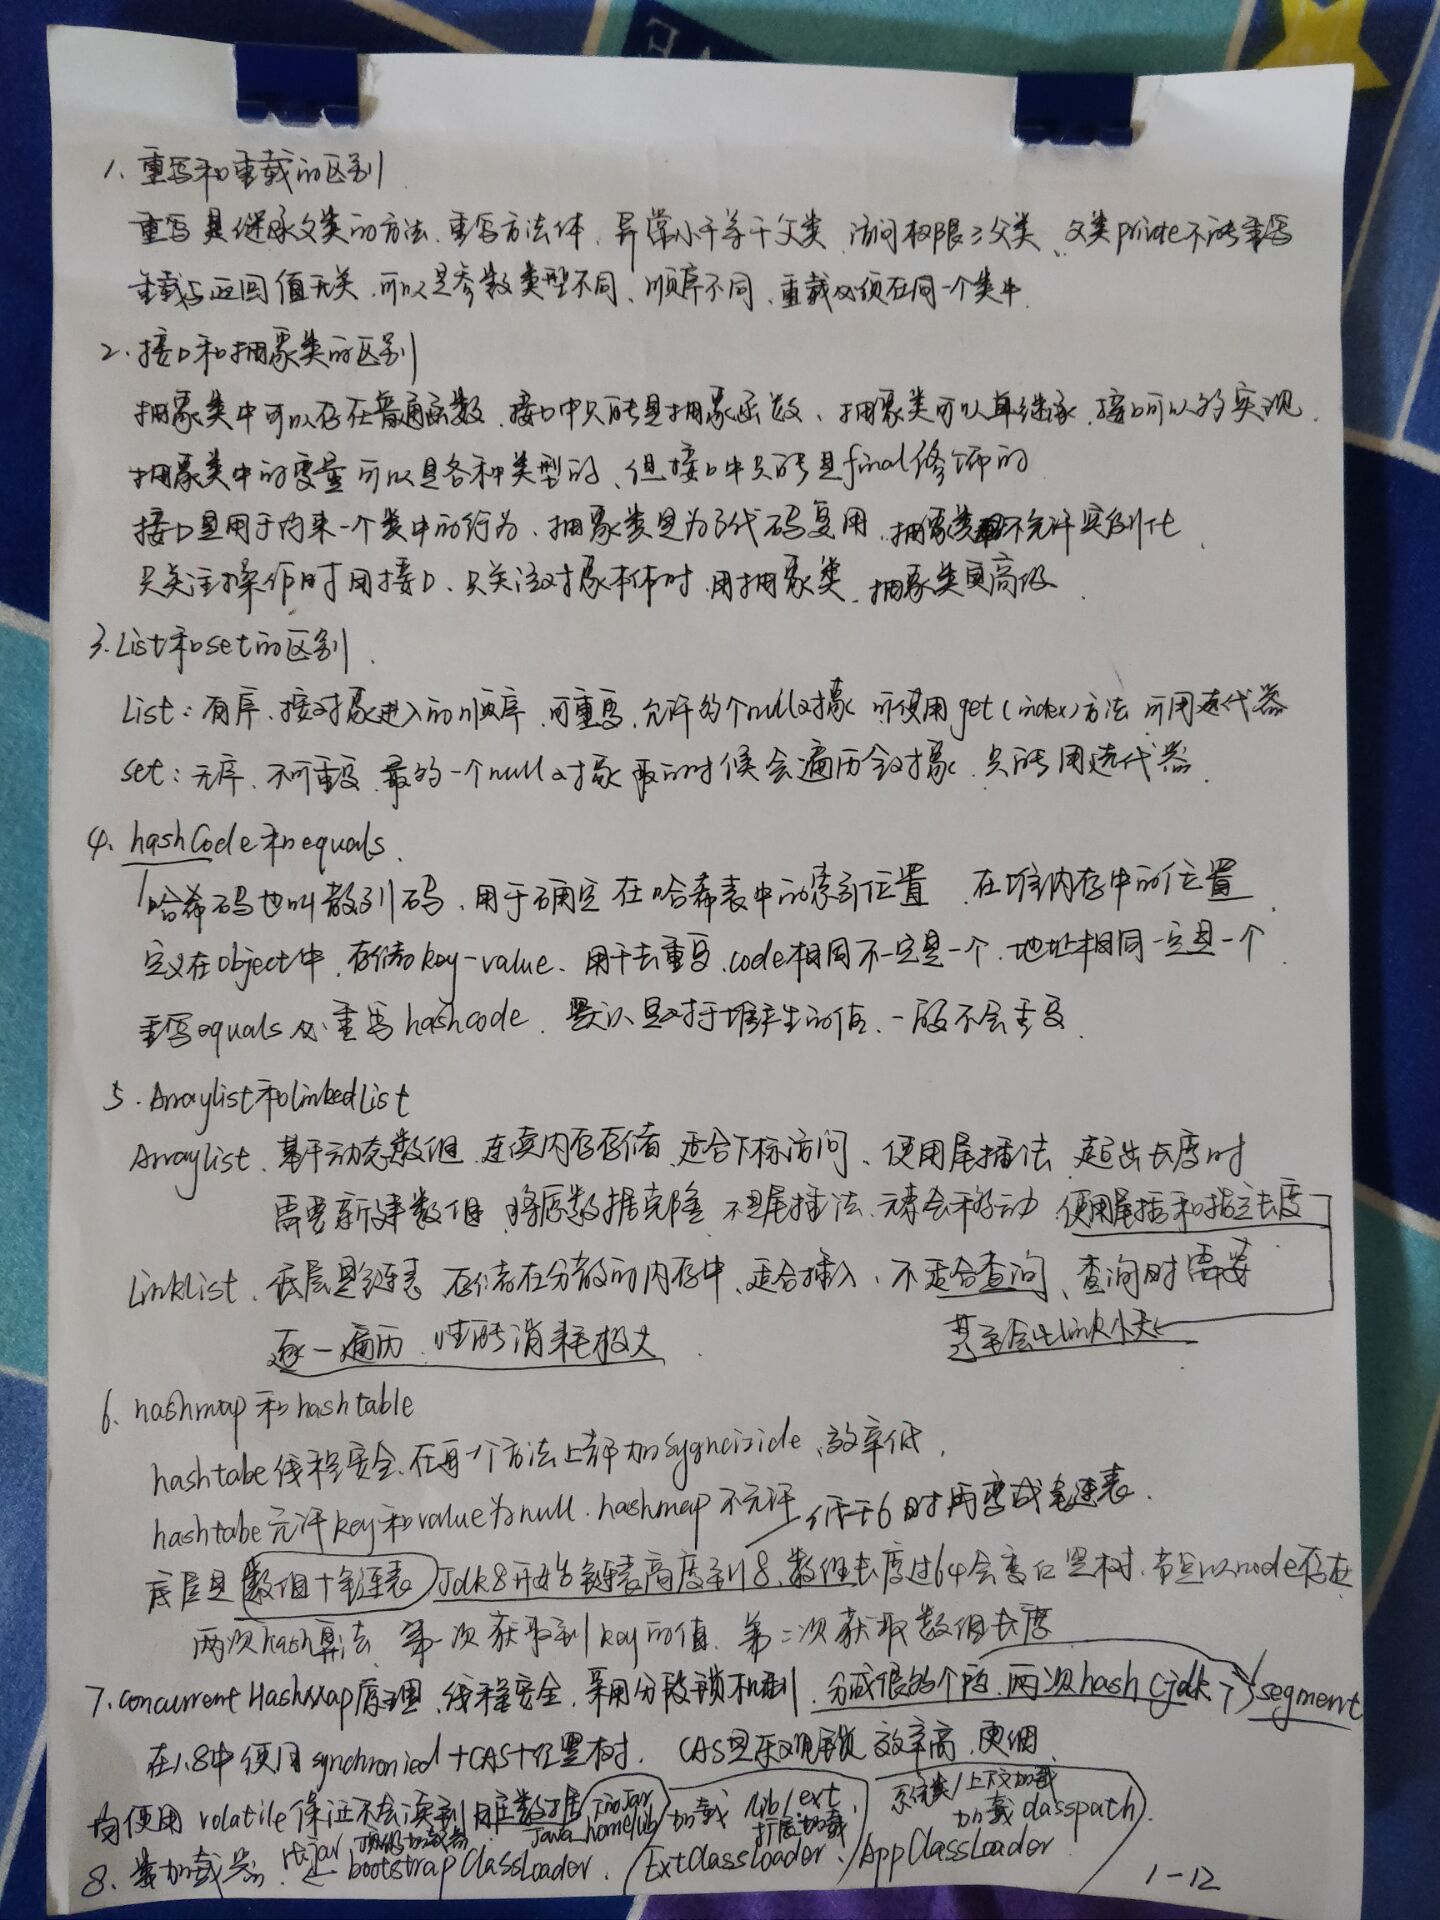 1、重写和重载的区别
重写是继承父类的方法、重写方法体、异常小于等于父类 访问权限≥父类、父类private不能重写
重载与返回值无关、可以是参数类型不同、顺序不同、重载必须在同一个类中
2、接口和抽象类的区别
抽象类中可以存在普通函数、接口中只能是抽象函数、抽象类可以单继承、接口可以多实现、
抽象类中的变量可以是各种类型的、但接口中只能是final修饰的
接口是用于约束一个类中的行为、抽象类是为了代码复用、抽象类不允许实例化、
只关注操作时用接口、只关注对象本体时、用抽象类、抽象类更高级、
3、List和set的区别、
List：有序、按对象进入的顺序、可重复、允许多个null对象 可使用get(index)方法 可用迭代器
set：无序、不可重复、最多一个null对象 取的时候会遍历全对象、只能用迭代器、
4、hashCode和equals、
哈希码也叫散列码、用于确定在哈希表中的索引位置、在堆内存中的位置、
定义在object中、存储key-value、用于去重复、code相同不一定是一个、地址相同一定是一个
重写equals必重写hashcode、默认是对于堆产生的值、一般不会重复、
5、Arraylist和linkedList
Arraylist、基于动态数组、连续内存存储、适合下标访问、使用尾插法 超出长度时
需要新建数组、将原数据克隆、不是尾插法、元素会移动、使用尾插和指定长度
LinkList、底层是链表 存储在分散的内存中、适合插入、不适合查询、查询时需要
逐一遍历、性能消耗极大、 甚至会比link小夫
6、hashmap和hashtable
hashtabe线程安全、在每个方法上都加sygncizide、效率低、
hashtabe允许key和value为null、hashmap不允许 低于6时再变成链表、
底层是数组+链表 Jdk8开始链表高度到8、数组长度过64会变红黑树、节点以node存在
两次hash算法、第一次获取到key的值、第二次获取数组长度
7、concurrentHashMap原理、线程安全、采用分段锁机制、分成很多个段、两次hash (jdk7) segment
在1.8中使用synchronied+CAS+红黑树、 CAS是乐观锁 效率高、更细
均使用volatile保证不会读到脏数据 下的Jar 加载 /lib/ext 系统类/上下文加载
rt.jar java_home/lib 扩展加载 加载classpath)
8、类加载器、 bootstrapClassLoader、/ExtClassLoader、/AppClassLoader
1-12